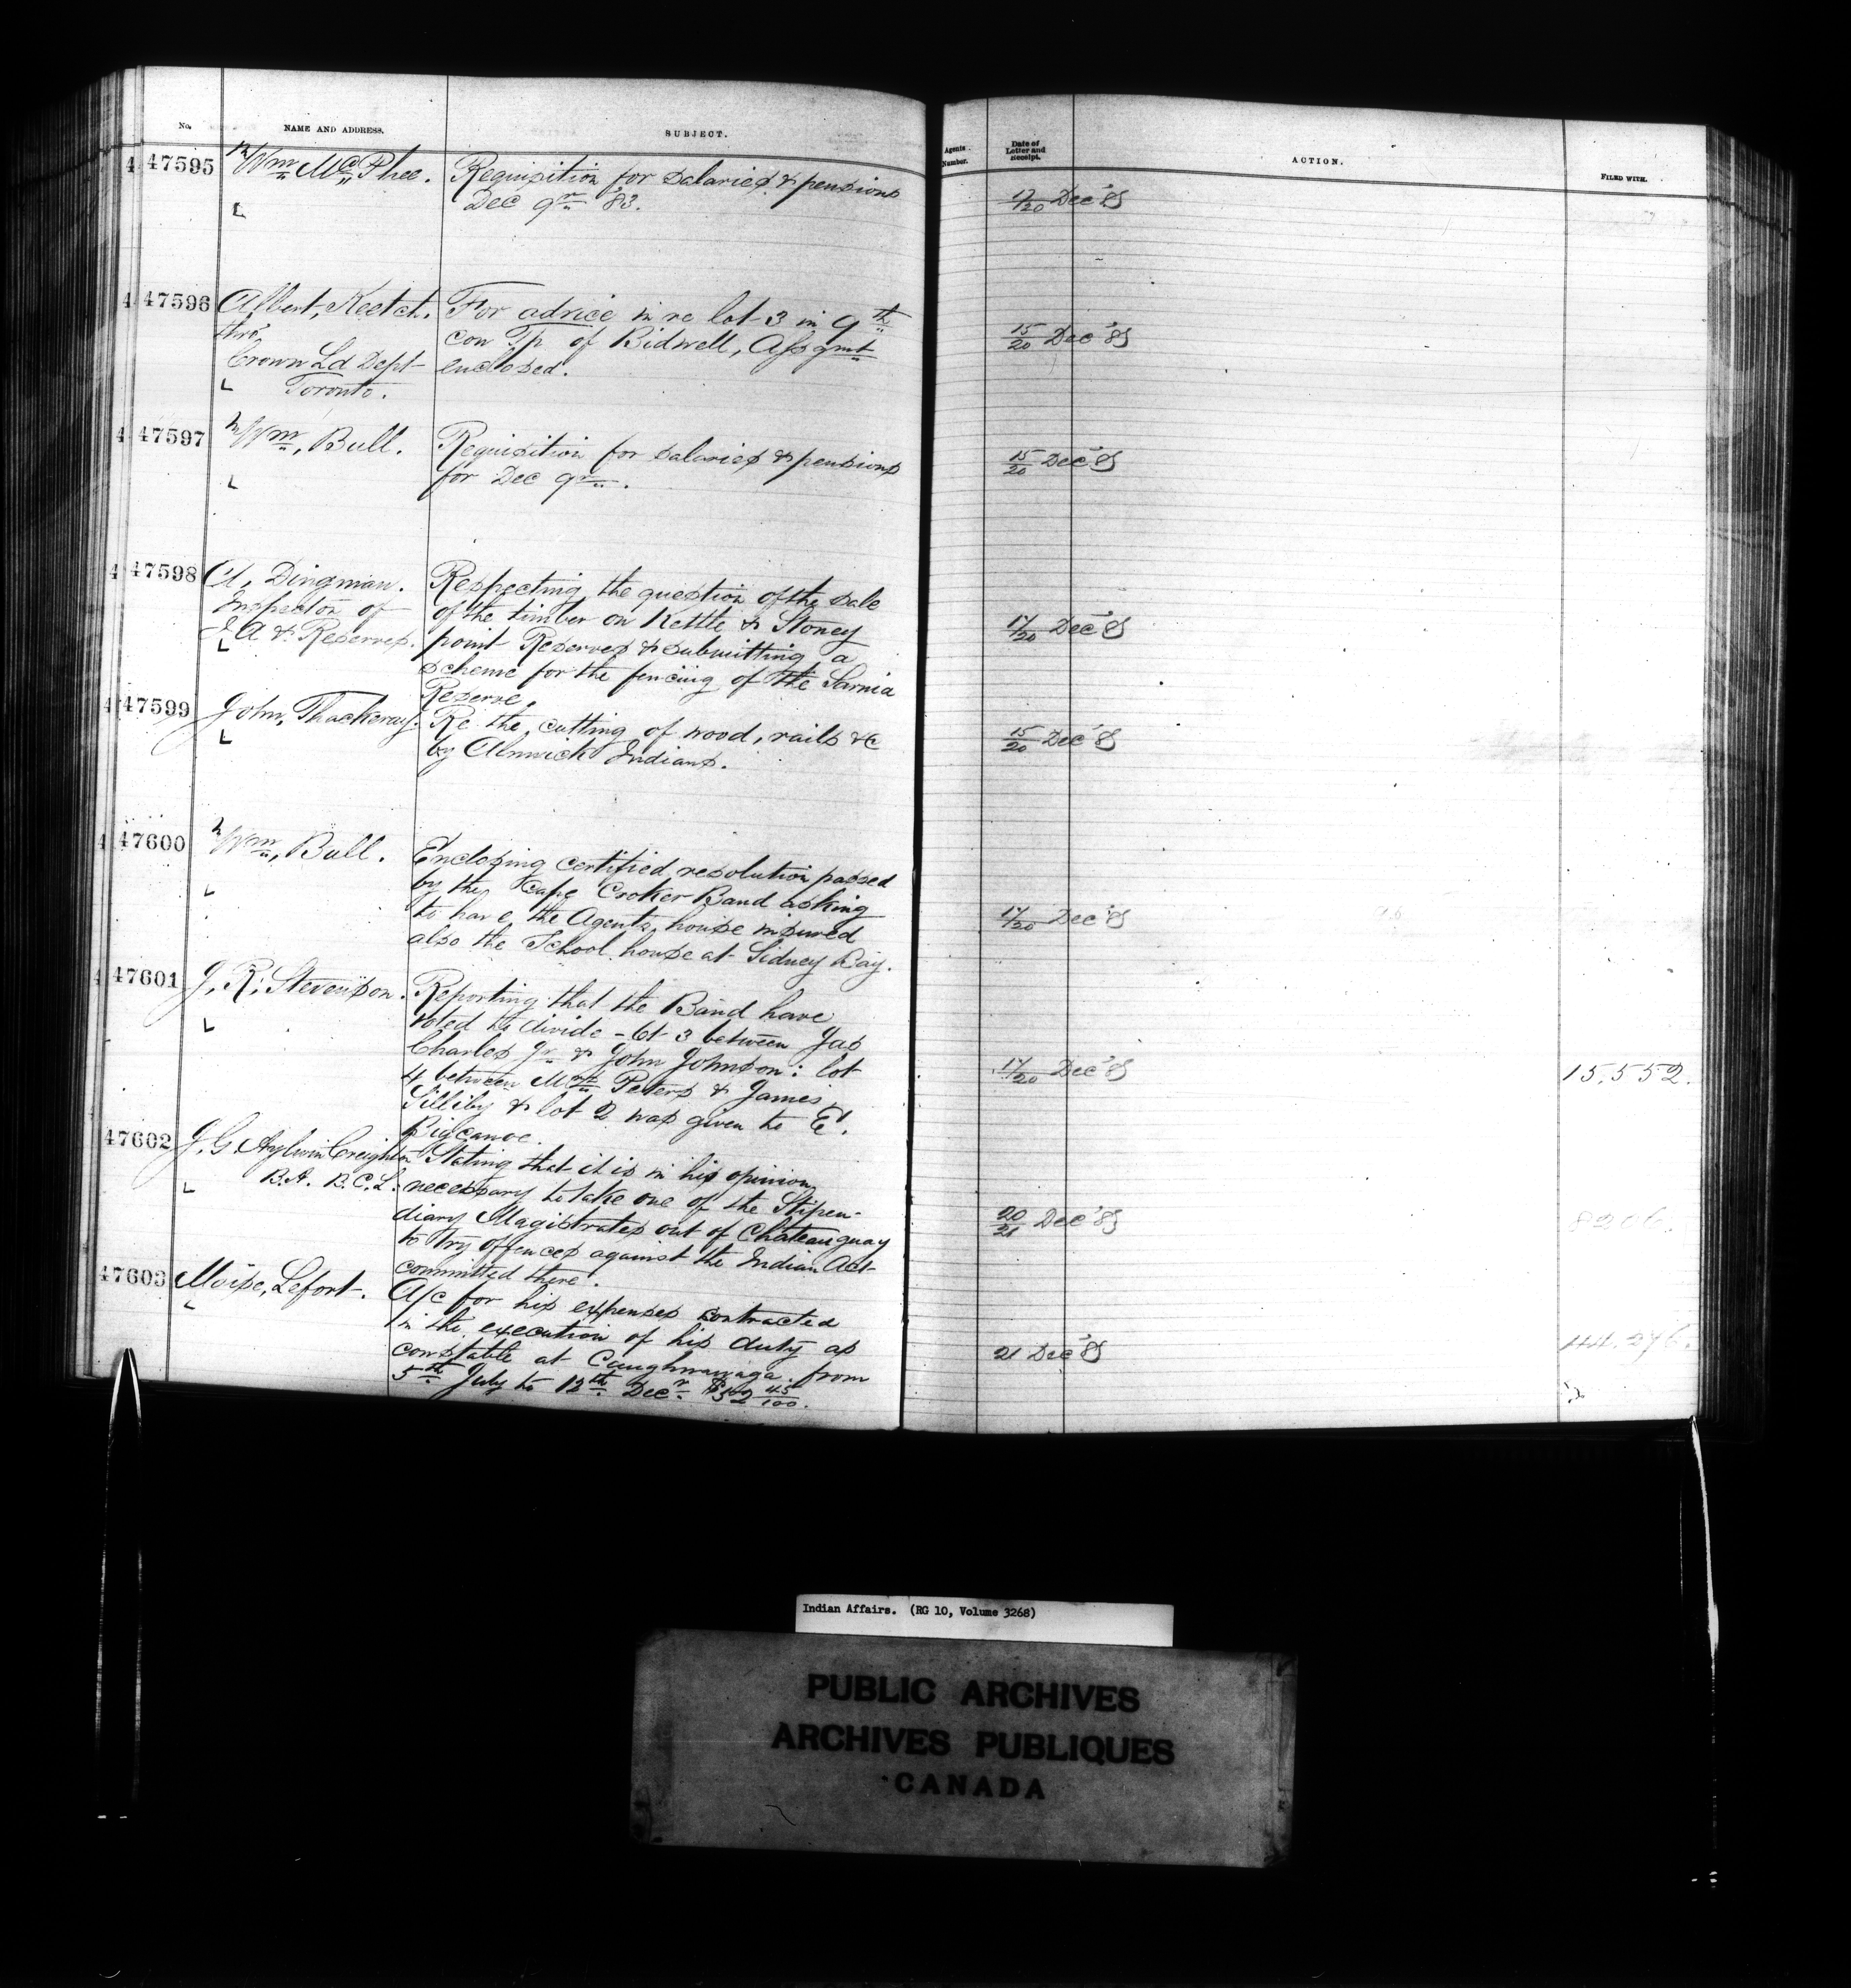 No. NAME AND ADDRESS. SUBJECT. Agents Number. Date of Letter and Receipt. ACTION. FILED WITH.
47595 Wm McPhee. Requisition for salaries & pensions 17/20 Dec '83
L Dec qr '83.
47596 Albert, Keetch. For advice in re lot 3 in 9th 15/20 Dec '83
thro' con Tp of Bidwell, Assgmt
Crown Ld Dept enclosed.
L Toronto.
47597 Wm, Bull. Requisition for salaries & pensions 15/20 Dec '83
L for Dec qr.
47598 A, Dingman. Respecting the question of the sale 17/20 Dec '83
Inspector of of the timber on Kettle & Stoney
I A & Reserves. point Reserves & submitting a
L scheme for the fencing of the Sarnia
Reserve.
47599 John, Thackeray. Re the cutting of wood, rails &c 15/20 Dec '83
L by Alnwick Indians.
47600 Wm, Bull. Enclosing certified resolution passed 17/20 Dec '83
L by the Cape Croker Band asking
to have the Agents house insured
also the School house at Sidney Bay.
47601 J, R, Stevenson. Reporting that the Band have 17/20 Dec '83 15.552.
L voted to divide lot 3 between Jas
Charles Jr & John Johnson: lot
4 between Mrs Peters & James
Silliby & lot 2 was given to E.
Bigcanoe.
47602 J. G Aylwin Creighton Stating that it is in his opinion 20/21 Dec '83 8206.
L B.A. B.C.L. necessary to take one of the Stipen-
diary Magistrates out of Chateauguay
to try offences against the Indian Act
committed there.
47603 Moise, Lefort. A/c for his expenses contracted 21 Dec '83 44.276.
L in the execution of his duty as
constable at Caughnawaga from
5th July to 12th Decr. $52 45/100.
Indian Affairs. (RG 10, Volume 3268)
PUBLIC ARCHIVES
ARCHIVES PUBLIQUES
CANADA